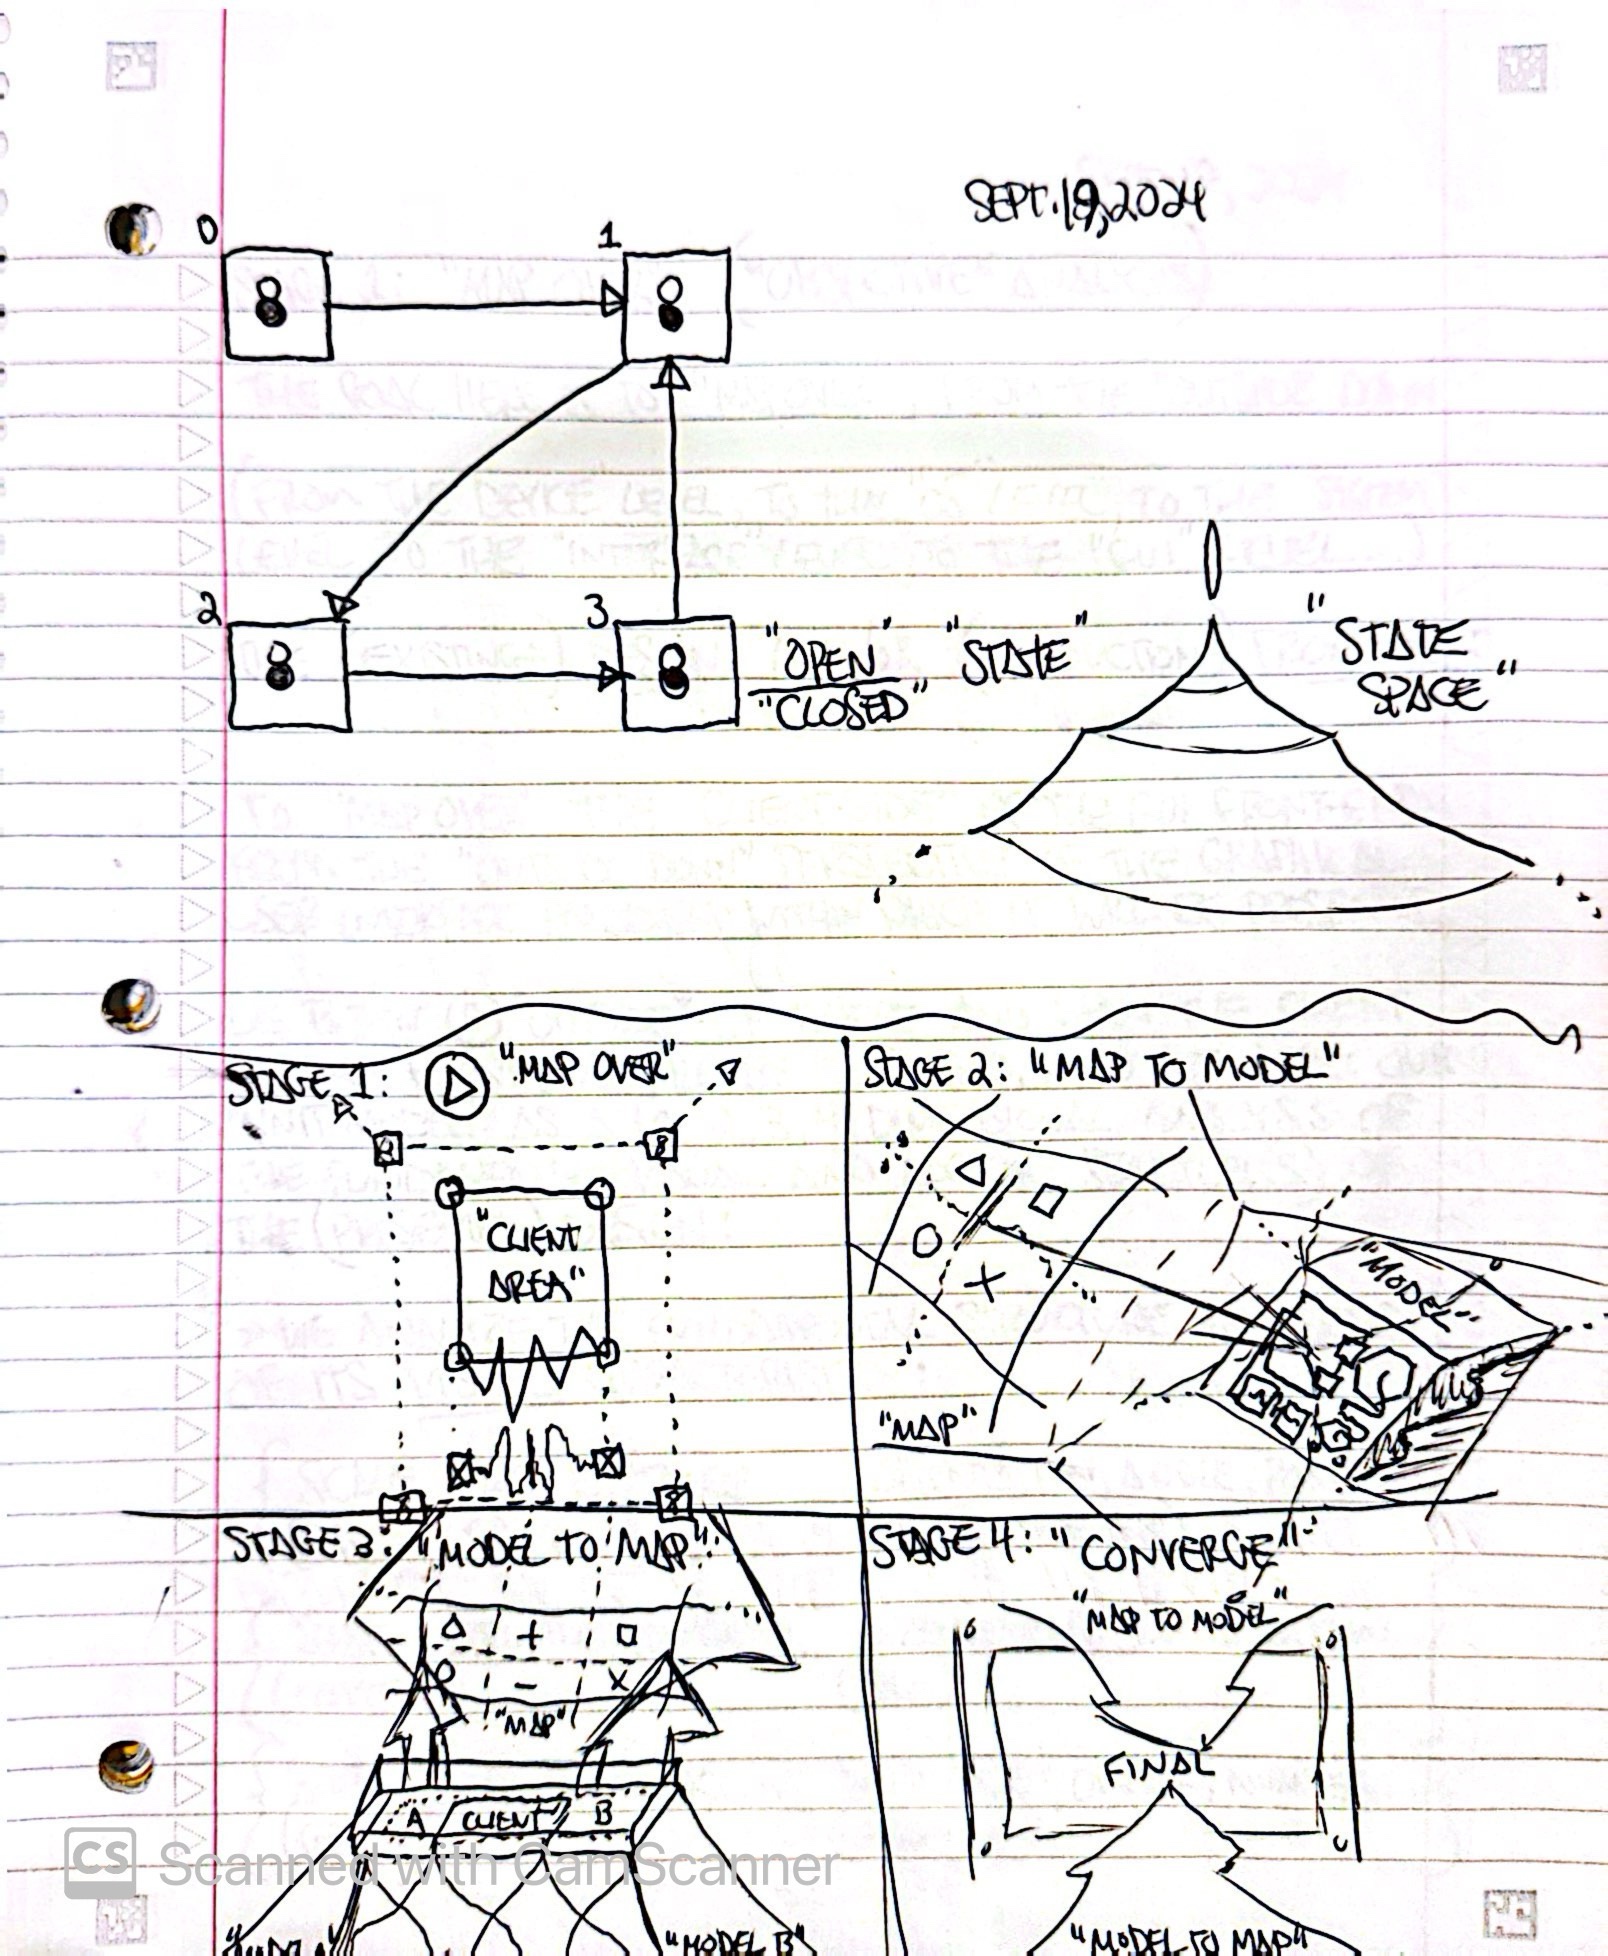 SEPT. 19, 2024
0
1
2
3
"OPEN" "STATE"
"CLOSED"
"STATE
SPACE"
STAGE 1: "MAP OVER"
"CLIENT
AREA"
STAGE 2: "MAP TO MODEL"
"MODEL"
"MAP"
STAGE 3: "MODEL TO MAP"
"MAP"
A CLIENT B
"MODEL B"
STAGE 4: "CONVERGE"
"MAP TO MODEL"
FINAL
"MODEL TO MAP"
CS Scanned with CamScanner